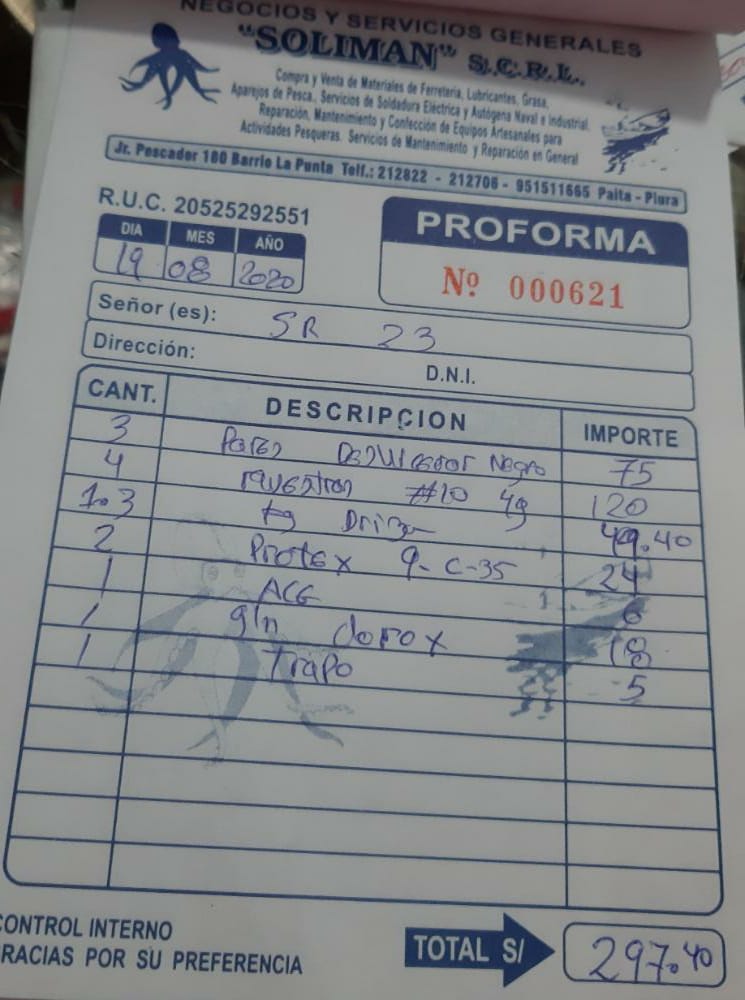 NEGOCIOS Y SERVICIOS GENERALES
"SOLIMAN" S.C.R.L.
Compra y Venta de Materiales de Ferretería, Lubricantes, Grasa,
Aparejos de Pesca, Servicios de Soldadura Eléctrica y Autógena Naval e Industrial,
Reparación, Mantenimiento y Confección de Equipos Artesanales para
Actividades Pesqueras. Servicios de Mantenimiento y Reparación en General
Jr. Pescador 180 Barrio La Punta Telf.: 212822 - 212706 - 951511665 Paita - Piura
R.U.C. 20525292551
PROFORMA
DIA MES AÑO
19 08 2020
Nº 000621
Señor (es): SR 23
Dirección:
D.N.I.
CANT. DESCRIPCION IMPORTE
3 Negro 75
4 #10 49 120
1.3 kg 49.40
2 Protex 9-C-35 24
1 6
1 gln clorox 18
1 Trapo 5
CONTROL INTERNO
GRACIAS POR SU PREFERENCIA
TOTAL S/ 297.40